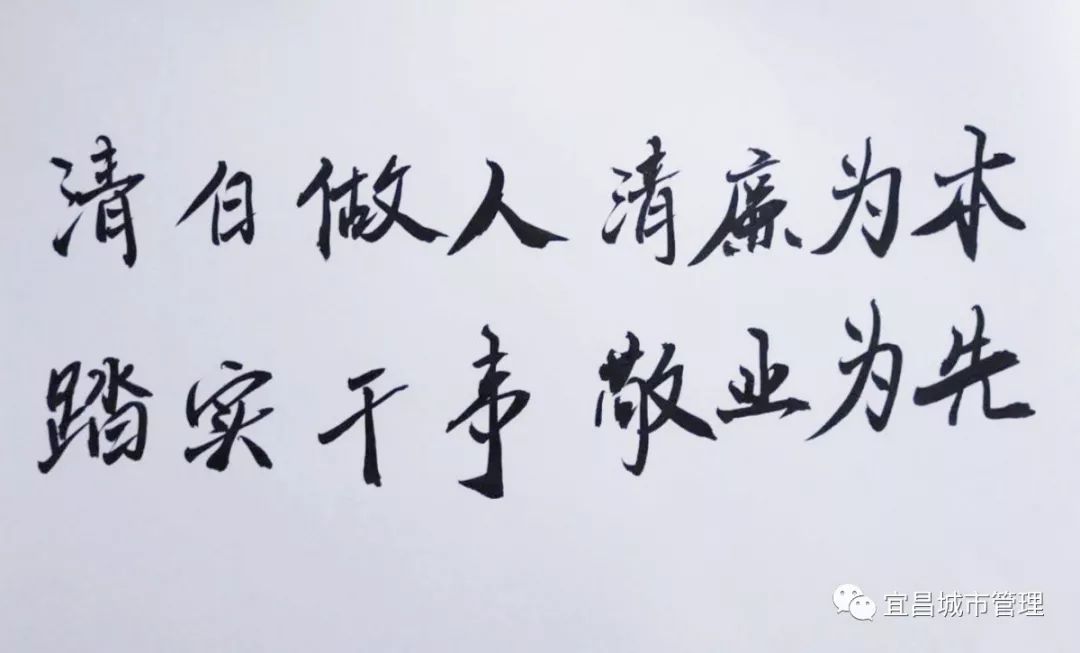 清白做人 清廉为本
踏实干事 敬业为先
宜昌城市管理